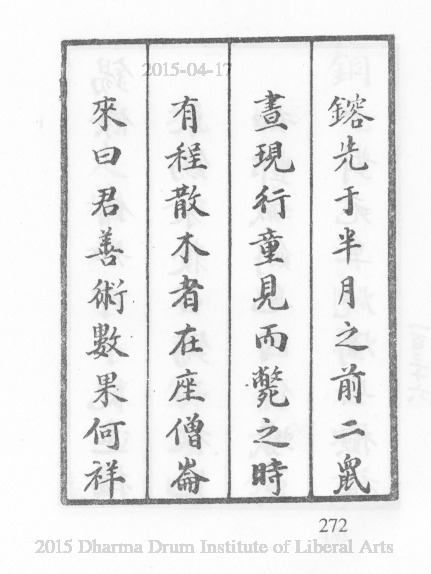 鎔先于半月之前二鼠
晝現行童見而斃之時
有程散木者在座僧崙
來曰君善術數果何祥
2015-04-17
272
2015 Dharma Drum Institute of Liberal Arts